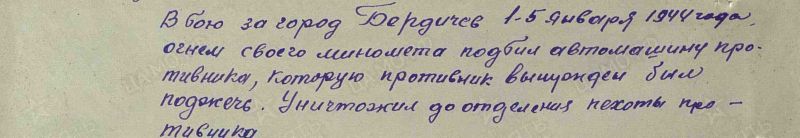 В бою за город Бердичев 1-5 января 1944 года,
огнем своего миномета подбил автомашину про-
тивника, которую противник вынужден был
поджечь. Уничтожил до отделения пехоты про-
тивника